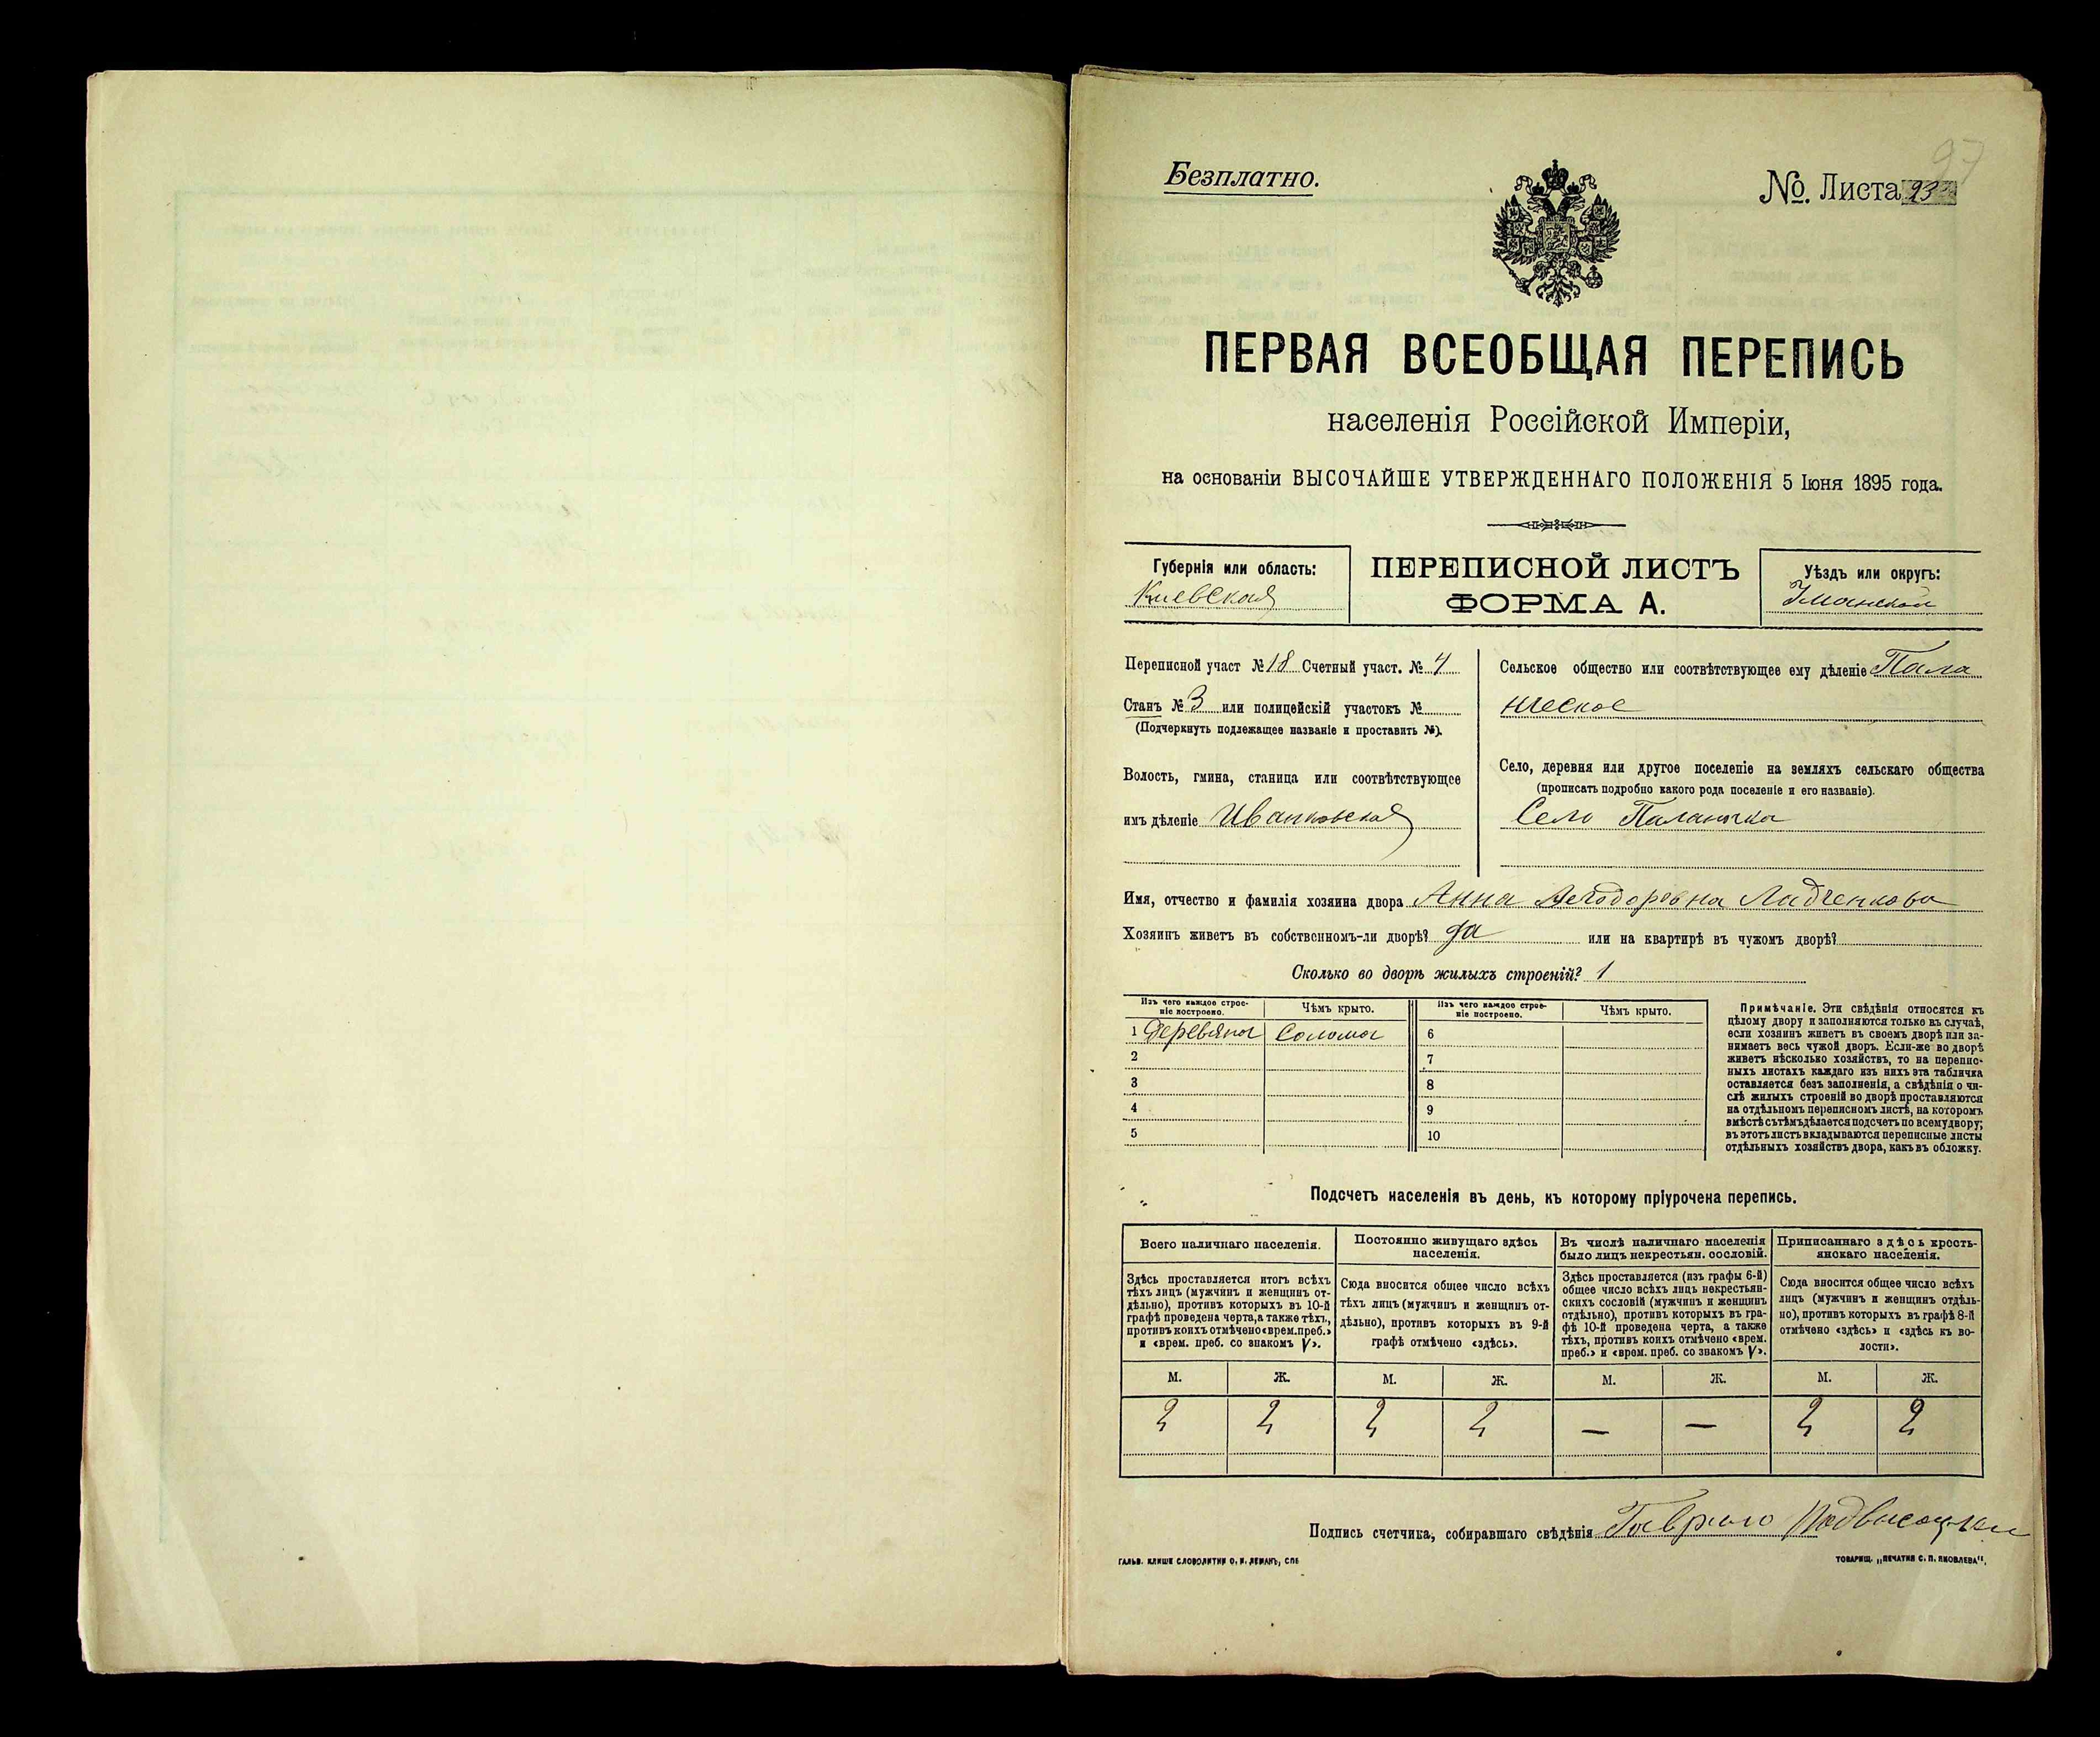 97
Безплатно.
№ Листа 93
ПЕРВАЯ ВСЕОБЩАЯ ПЕРЕПИСЬ
населенія Россійской Имперіи,
на основаніи ВЫСОЧАЙШЕ УТВЕРЖДЕННАГО ПОЛОЖЕНІЯ 5 Іюня 1895 года.
Губернія или область:
Киевская
ПЕРЕПИСНОЙ ЛИСТЪ
ФОРМА А.
Уѣздъ или округъ:
Уманский
Переписной участ № 18 Счетный участ. № 4
Станъ № 3 или полицейскій участокъ №
(Подчеркнуть подлежащее названіе и проставить №).
Волость, гмина, станица или соотвѣтствующее
имъ дѣленіе Иванковская
Сельское общество или соотвѣтствующее ему дѣленіе Пала
нческое
Село, деревня или другое поселеніе на земляхъ сельскаго общества
(прописать подробно какого рода поселеніе и его названіе).
Село Паланка
Имя, отчество и фамилія хозяина двора Анна Ладченкова
Хозяинъ живетъ въ собственномъ-ли дворѣ? да или на квартирѣ въ чужомъ дворѣ?
Сколько во дворѣ жилыхъ строеній? 1
Изъ чего каждое строе-
ніе построено.
Чѣмъ крыто.
Изъ чего каждое строе-
ніе построено.
Чѣмъ крыто.
1 Деревяна Солома 6
2 7
3 8
4 9
5 10
Примѣчаніе. Эти свѣдѣнія относятся къ
цѣлому двору и заполняются только въ случаѣ,
если хозяинъ живетъ въ своемъ дворѣ или за-
нимаетъ весь чужой дворъ. Если-же во дворѣ
живетъ нѣсколько хозяйствъ, то на перепис-
ныхъ листахъ каждаго изъ нихъ эта табличка
оставляется безъ заполненія, а свѣдѣнія о чи-
слѣ жилыхъ строеній во дворѣ проставляются
на отдѣльномъ переписномъ листѣ, на которомъ
вмѣстѣ съ тѣмъ дѣлается подсчетъ по всему двору;
въ этотъ листъ вкладываются переписные листы
отдѣльныхъ хозяйствъ двора, какъ въ обложку.
Подсчетъ населенія въ день, къ которому пріурочена перепись.
Всего наличнаго населенія.
Здѣсь проставляется итогъ всѣхъ
тѣхъ лицъ (мужчинъ и женщинъ от-
дѣльно), противъ которыхъ въ 10-й
графѣ проведена черта, а также тѣхъ,
противъ коихъ отмѣчено «врем. преб.»
и «врем. преб. со знакомъ V».
Постоянно живущаго здѣсь
населенія.
Сюда вносится общее число всѣхъ
тѣхъ лицъ (мужчинъ и женщинъ от-
дѣльно), противъ которыхъ въ 9-й
графѣ отмѣчено «здѣсь».
Въ числѣ наличнаго населенія
было лицъ некрестьян. сословій.
Здѣсь проставляется (изъ графы 6-й)
общее число всѣхъ лицъ некрестьян-
скихъ сословій (мужчинъ и женщинъ
отдѣльно), противъ которыхъ въ гра-
фѣ 10-й проведена черта, а также
тѣхъ, противъ коихъ отмѣчено «врем.
преб.» и «врем. преб. со знакомъ V».
Приписаннаго здѣсь кресть-
янскаго населенія.
Сюда вносится общее число всѣхъ
лицъ (мужчинъ и женщинъ отдѣль-
но), противъ которыхъ въ графѣ 8-й
отмѣчено «здѣсь» и «здѣсь къ во-
лости».
М. Ж. М. Ж. М. Ж. М. Ж.
2 2 2 2 — — 2 2
Подпись счетчика, собиравшаго свѣдѣнія Гаврило Подвысоцкий
ГАЛЬВ. КЛИШЕ СЛОВОЛИТНИ О. И. ЛЕМАНЪ, СПБ
ТОВАРИЩ. „ПЕЧАТНЯ С. П. ЯКОВЛЕВА".